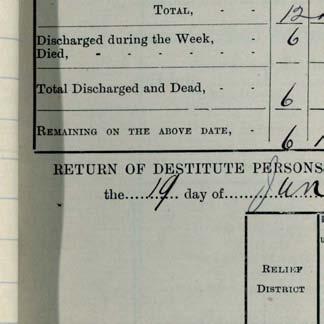 TOTAL, - - 12
Discharged during the Week, - 6
Died, - - - - -
Total Discharged and Dead, - - 6
REMAINING ON THE ABOVE DATE, - 6
RETURN OF DESTITUTE PERSONS
the 19 day of Jun
RELIEF
DISTRICT